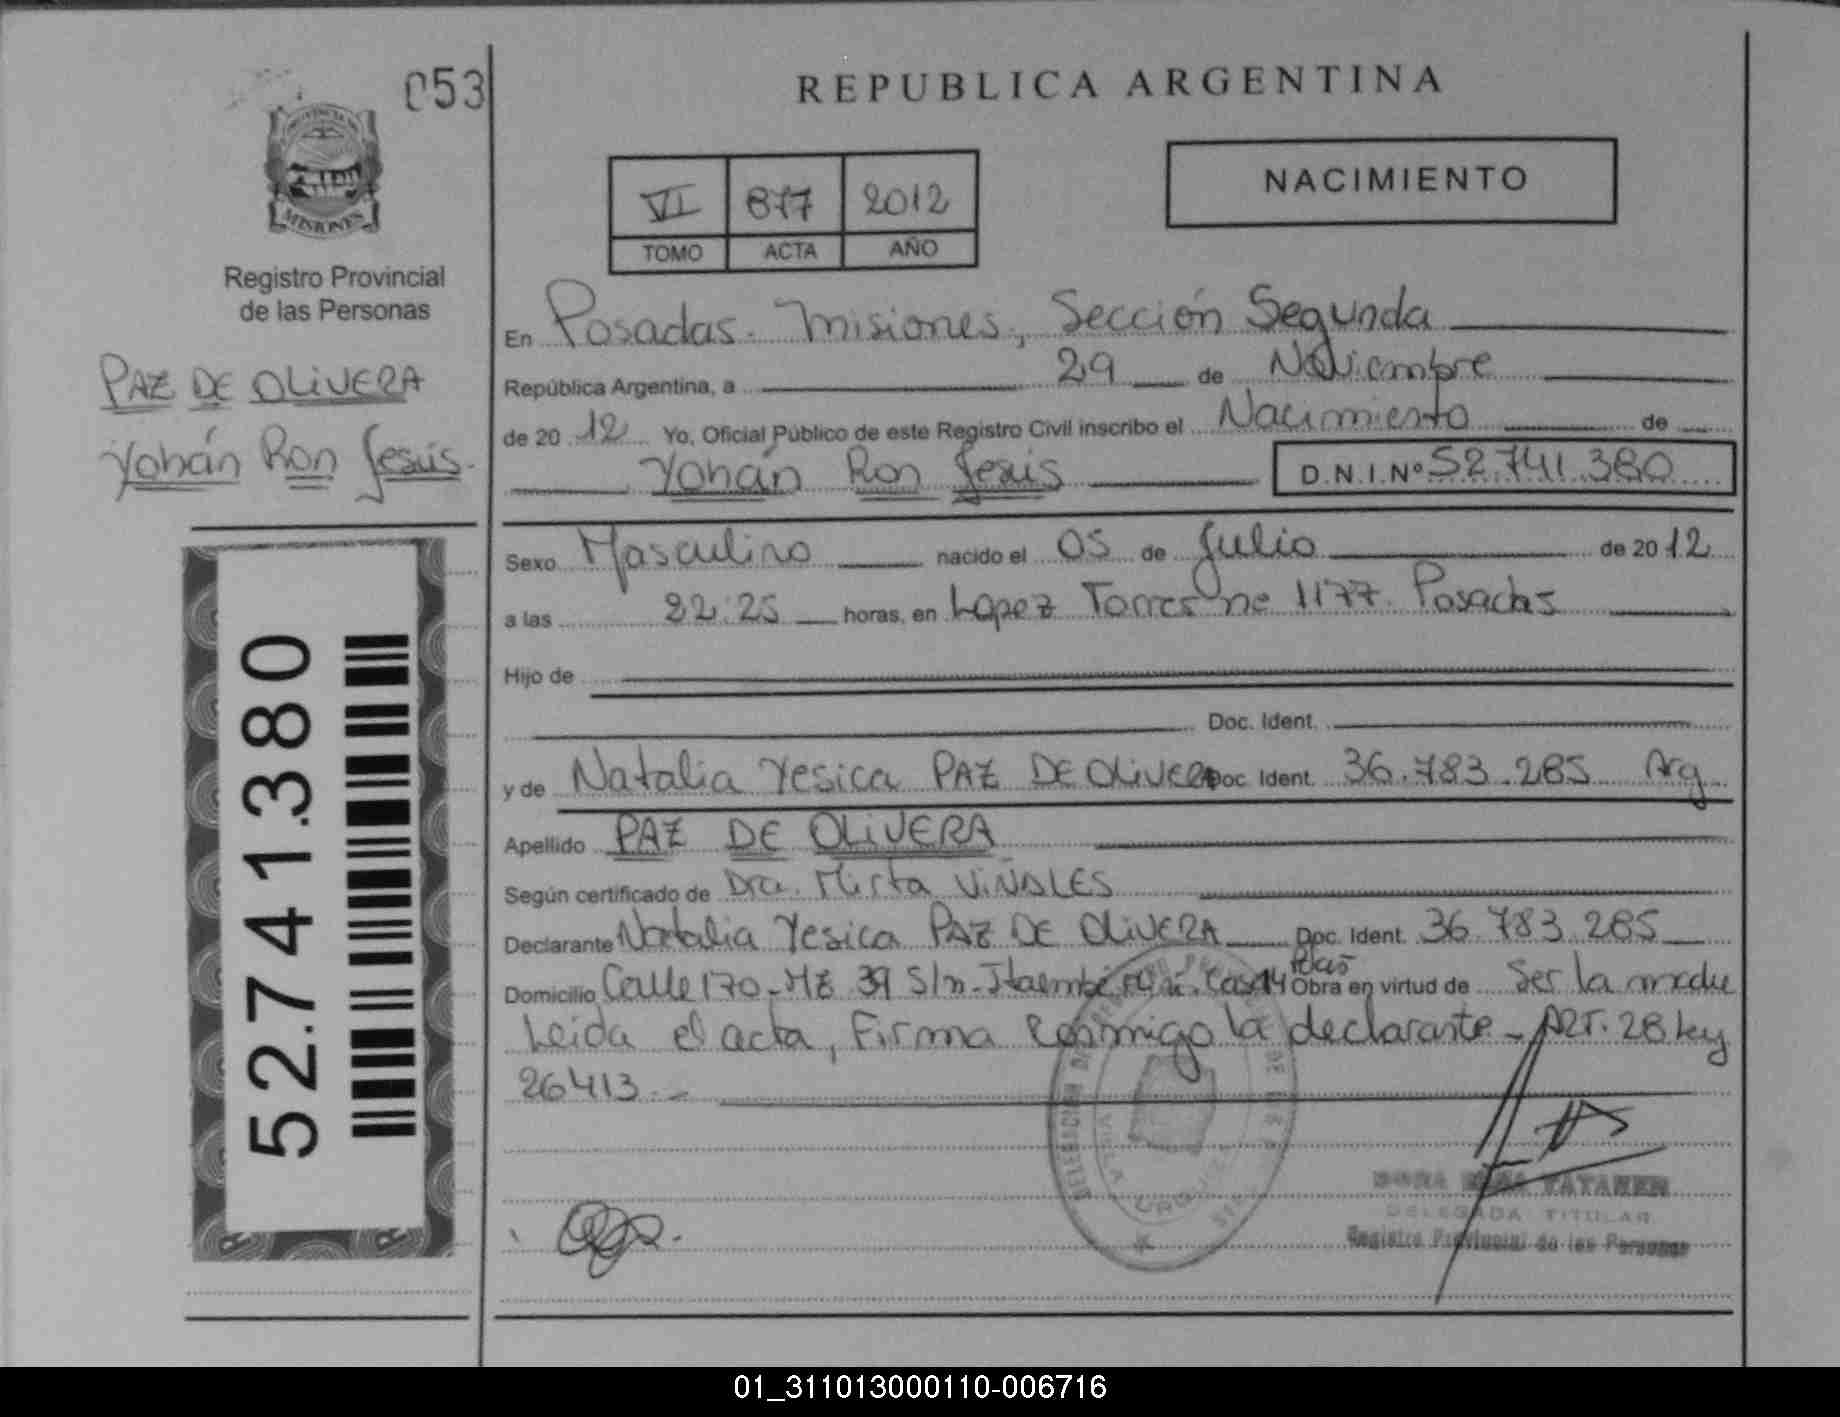 053
REPUBLICA ARGENTINA
PROVINCIA DE
MISIONES
Registro Provincial
de las Personas
VI 877 2012
TOMO ACTA AÑO
NACIMIENTO
PAZ DE OLIVERA
Yohán Ron Jesús.
En Posadas. Misiones, Sección Segunda
República Argentina, a 29 de Noviembre
de 20 12 Yo, Oficial Público de este Registro Civil inscribo el Nacimiento de
Yohán Ron Jesús D.N.I.Nº 52.741.380
Sexo Masculino nacido el 05 de Julio de 20 12
a las 22:25 horas, en Lopez Torres ne 1177. Posadas
Hijo de
Doc. Ident.
y de Natalia Yesica PAZ DE OLIVERA Doc. Ident. 36.783.285 Arg
Apellido PAZ DE OLIVERA
Según certificado de Dra. Mirta VIÑALES
Declarante Natalia Yesica PAZ DE OLIVERA Doc. Ident. 36.783.285
Domicilio Calle 170-MZ 39 S/n-Itaembé Miní-Casa 14 Pdas Obra en virtud de Ser la madre
Leida el acta, Firma conmigo la declarante - ART. 28 Ley
26413.-
52.741.380
DELEGADA TITULAR
Registro Provincial de las Personas
01_311013000110-006716